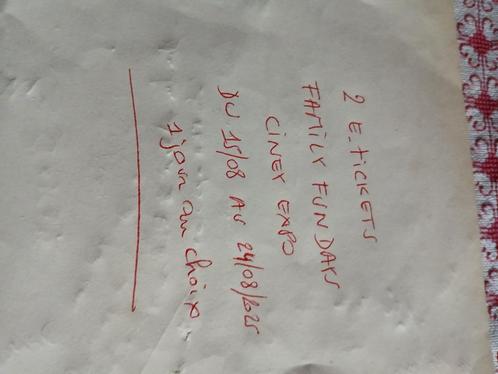 2 E.TICKETS
FAMILY FUN DAYS
CINEY EXPO
DU 15/08 AU 24/08/2025
1 jour au choix